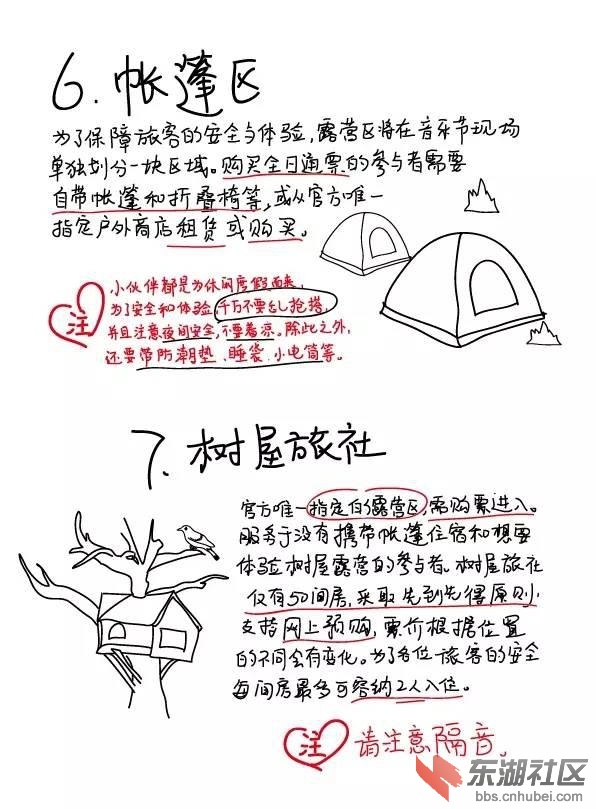 6. 帐篷区
为了保障旅客的安全与体验,露营区将在音乐节现场
单独划分一块区域。购买全日通票的参与者需要
自带帐篷和折叠椅等,或从官方唯一
指定户外商店租赁或购买。
注
小伙伴都是为休闲度假而来,
为了安全和体验,千万不要乱抢搭,
并且注意夜间安全,不要着凉。除此之外,
还要带防潮垫、睡袋、小电筒等。
7. 树屋旅社
官方唯一指定的露营区,需购票进入。
服务于没有携带帐篷住宿和想要
体验树屋露营的参与者。树屋旅社
仅有50间房,采取先到先得原则,
支持网上预购,票价根据位置
的不同会有变化。为了各位旅客的安全
每间房最多可容纳2人入住。
注 请注意隔音。
东湖社区
bbs.cnhubei.com